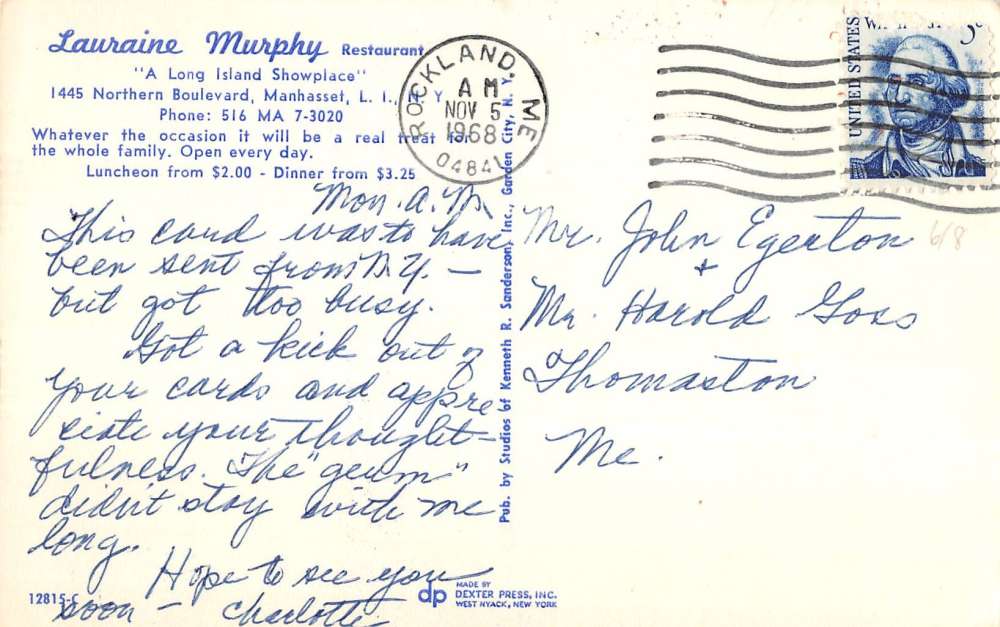 Lauraine Murphy Restaurant
"A Long Island Showplace"
1445 Northern Boulevard, Manhasset, L. I., N. Y.
Phone: 516 MA 7-3020
Whatever the occasion it will be a real treat for
the whole family. Open every day.
Luncheon from $2.00 - Dinner from $3.25
ROCKLAND, ME
A M
NOV 5
1968
04841
UNITED STATES
5c
Mon. A.M.
This card was to have
been sent from N.Y. —
but got too busy.
Got a kick out of
your cards and appre
ciate your thought-
fulness. The "germ"
didn't stay with me
long.
Hope to see you
soon — Charlotte.
12815-C
Pub. by Studios of Kenneth R. Sanderson, Inc., Garden City, N. Y.
Mr. John Egerton
+
Mr. Harold Goss
Thomaston
Me.
6/8
dp MADE BY
DEXTER PRESS, INC.
WEST NYACK, NEW YORK